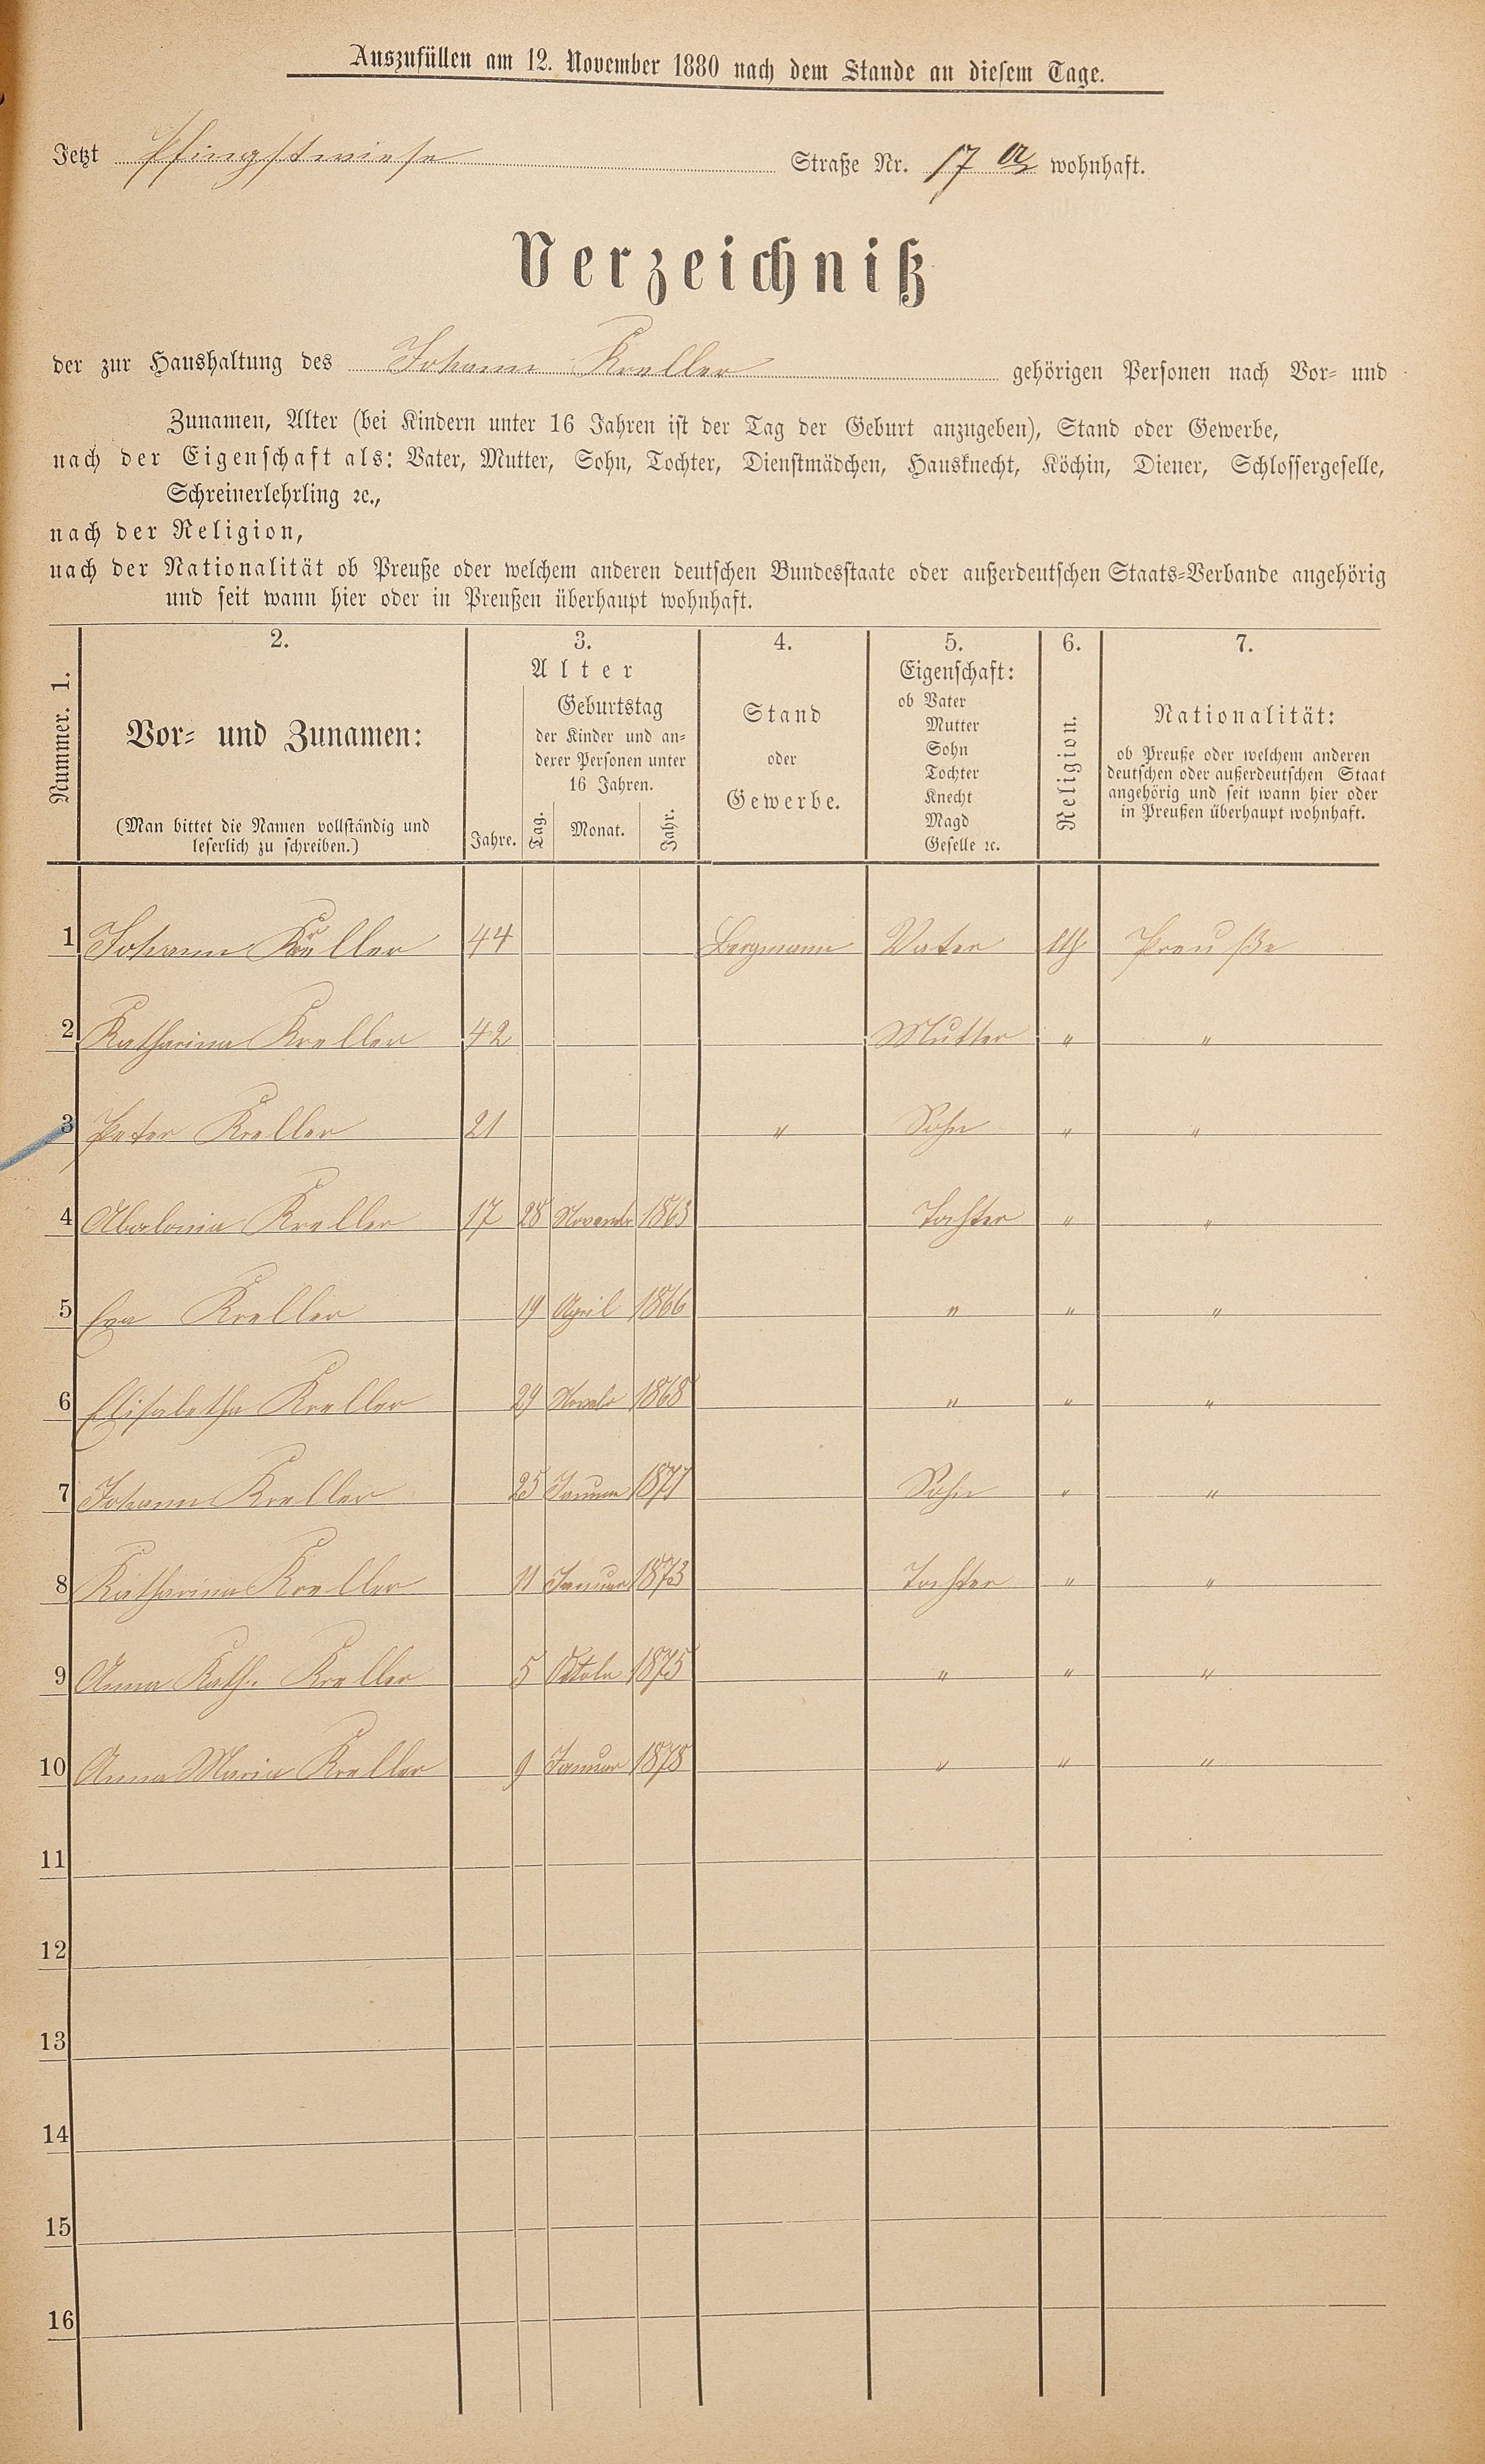 Auszufüllen am 12. November 1880 nach dem Stande an diesem Tage.
Jetzt Pfingstwiese Straße Nr. 17 a wohnhaft.
Verzeichniß
der zur Haushaltung des Johann Kreller gehörigen Personen nach Vor- und
Zunamen, Alter (bei Kindern unter 16 Jahren ist der Tag der Geburt anzugeben), Stand oder Gewerbe,
nach der Eigenschaft als: Vater, Mutter, Sohn, Tochter, Dienstmädchen, Hausknecht, Köchin, Diener, Schlossergeselle,
Schreinerlehrling ꝛc.,
nach der Religion,
nach der Nationalität ob Preuße oder welchem anderen deutschen Bundesstaate oder außerdeutschen Staats-Verbande angehörig
und seit wann hier oder in Preußen überhaupt wohnhaft.
Nummer. 1.
2.
Vor- und Zunamen:
(Man bittet die Namen vollständig und
leserlich zu schreiben.)
3.
Alter
Jahre.
Geburtstag
der Kinder und an-
derer Personen unter
16 Jahren.
Tag. Monat. Jahr.
4.
Stand
oder
Gewerbe.
5.
Eigenschaft:
ob Vater
Mutter
Sohn
Tochter
Knecht
Magd
Geselle ꝛc.
6.
Religion.
7.
Nationalität:
ob Preuße oder welchem anderen
deutschen oder außerdeutschen Staat
angehörig und seit wann hier oder
in Preußen überhaupt wohnhaft.
1 Johann Kreller 44 Bergmann Vater Preuße
2 Katharina Kreller 42 Mutter " "
3 Peter Kreller 21 " Sohn " "
4 Abalonia Kreller 17 28 Novembr 1863 Tochter " "
5 Eva Kreller 19 April 1866 " " "
6 Elisabetha Kreller 29 Novebr 1868 " " "
7 Johann Kreller 25 Januar 1871 Sohn " "
8 Katharina Kreller 11 Januar 1873 Tochter " "
9 Anna Kath. Kreller 5 Octobr 1875 " " "
10 Anna Maria Kreller 9 Januar 1878 " " "
11
12
13
14
15
16